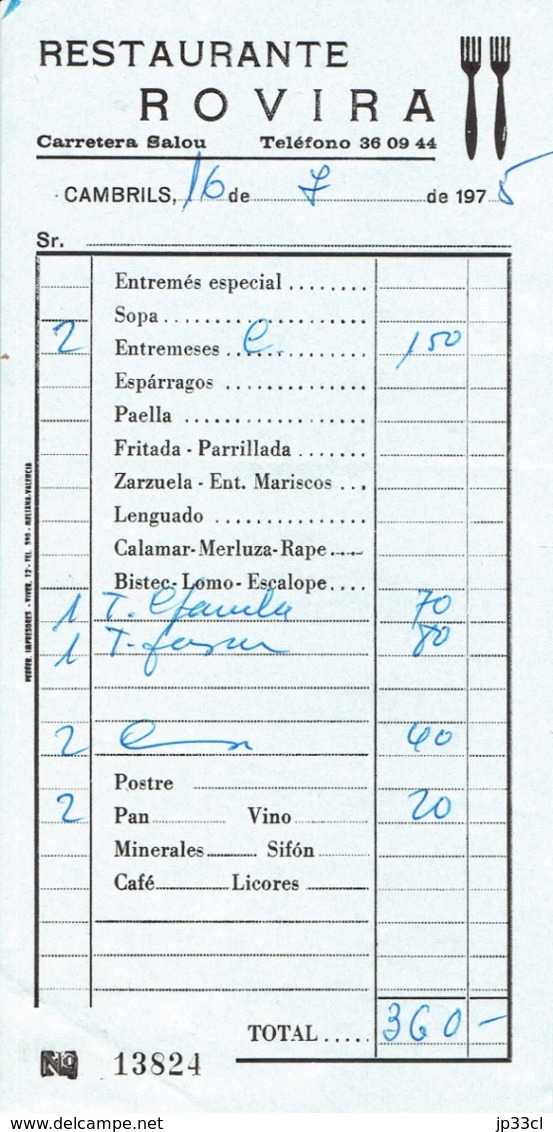 RESTAURANTE
ROVIRA
Carretera Salou Teléfono 36 09 44
CAMBRILS, 16 de 7 de 1975
Sr.
Entremés especial ........
Sopa ........
2 Entremeses ... C. ........ 150
Espárragos ........
Paella ........
Fritada - Parrillada ........
Zarzuela - Ent. Mariscos ...
Lenguado ........
Calamar-Merluza-Rape ....
Bistec-Lomo-Escalope ....
1 T. 70
1 T. 80
2 40
Postre
2 Pan Vino 20
Minerales Sifón
Café Licores
TOTAL ..... 360 -
Nº 13824
delcampe.net jp33cl